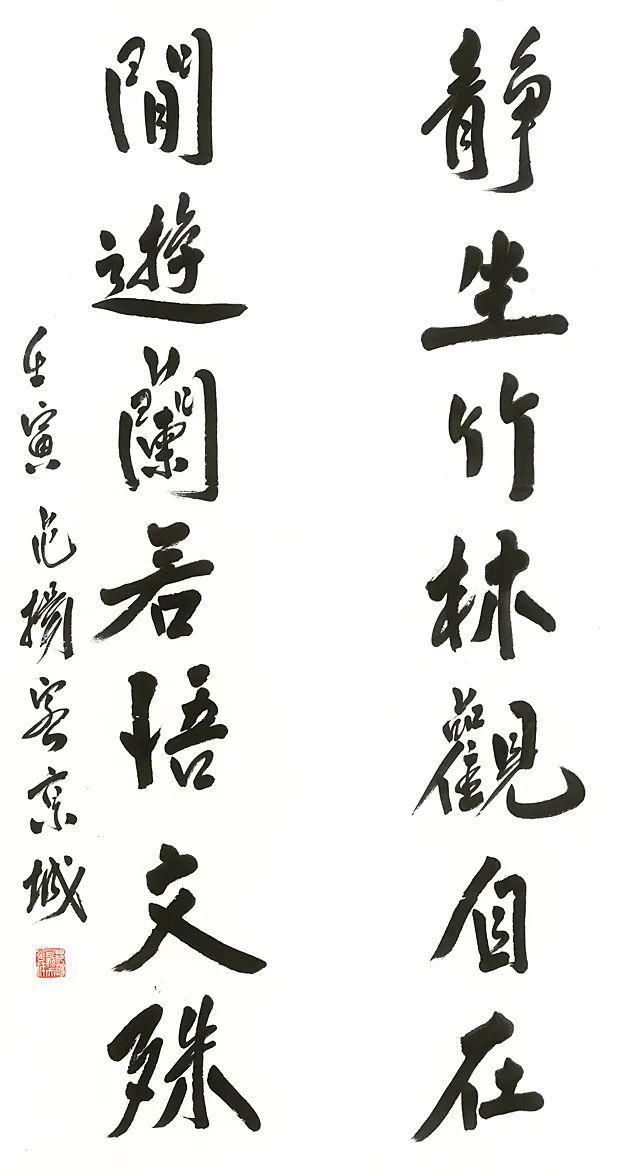 靜坐竹林觀自在
閒遊蘭若悟文殊
壬寅范揚客京城